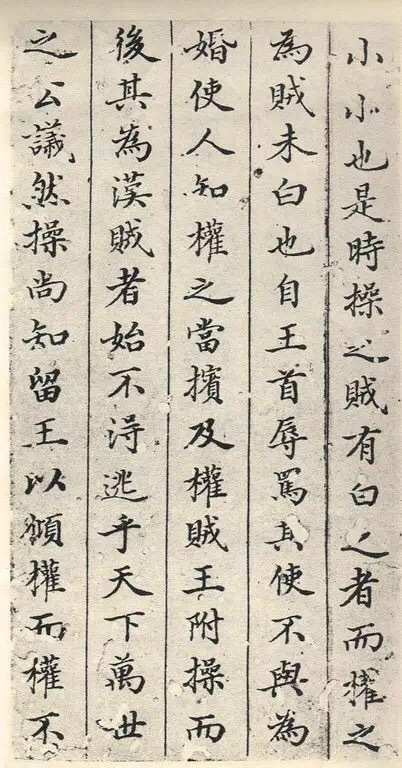 小小也是時操之賊有白之者而權之
為賊未白也自王首辱罵其使不與為
婚使人知權之當擯及權賊王附操而
後其為漢賊者始不得逃乎天下萬世
之公議然操尚知留王以傾權而權不